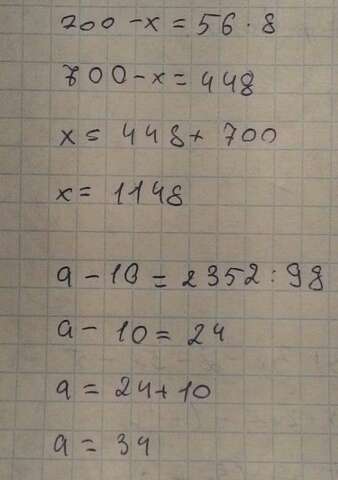 700 - x = 56 · 8
700 - x = 448
x = 448 + 700
x = 1148
a - 10 = 2352 : 98
a - 10 = 24
a = 24 + 10
a = 34